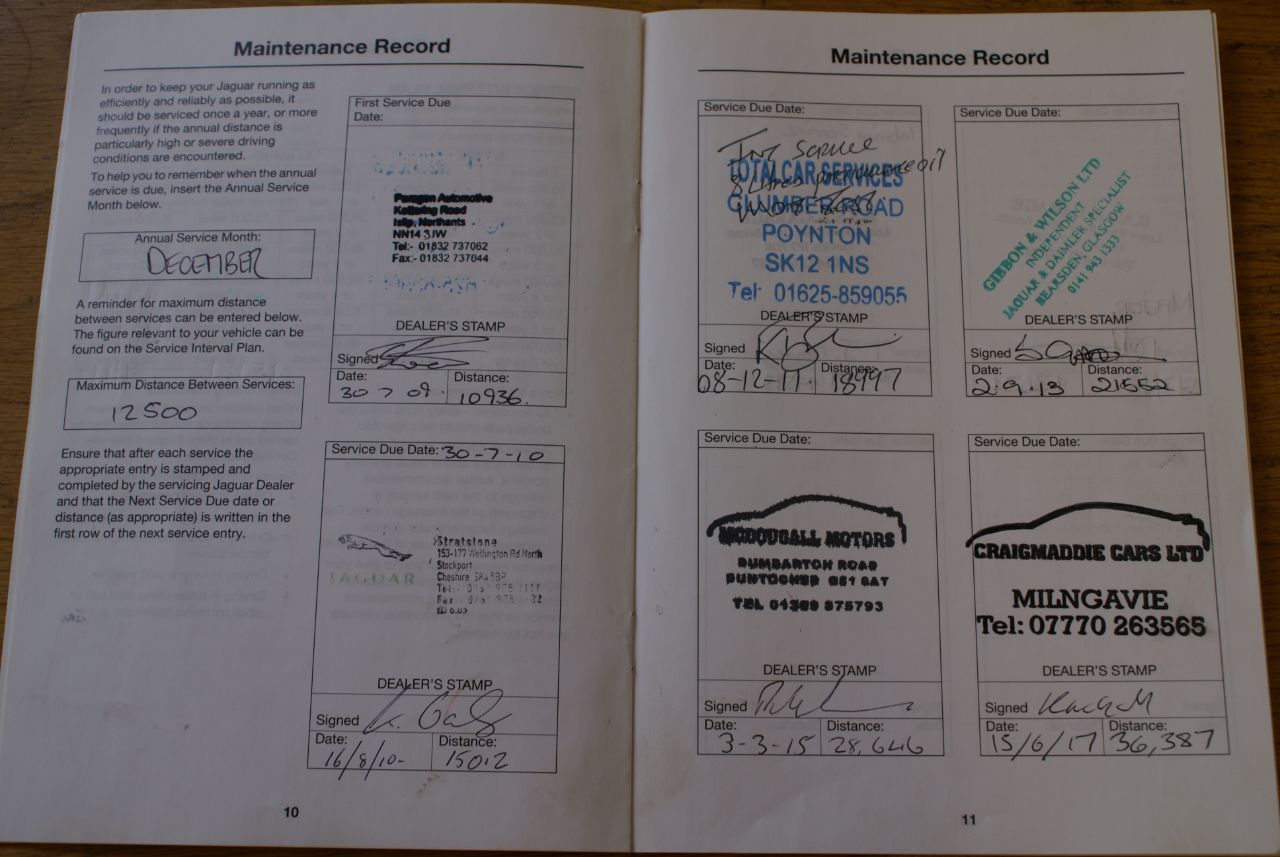 Maintenance Record
In order to keep your Jaguar running as
efficiently and reliably as possible, it
should be serviced once a year, or more
frequently if the annual distance is
particularly high or severe driving
conditions are encountered.
To help you to remember when the annual
service is due, insert the Annual Service
Month below.
Annual Service Month:
DECEMBER
A reminder for maximum distance
between services can be entered below.
The figure relevant to your vehicle can be
found on the Service Interval Plan.
Maximum Distance Between Services:
12500
Ensure that after each service the
appropriate entry is stamped and
completed by the servicing Jaguar Dealer
and that the Next Service Due date or
distance (as appropriate) is written in the
first row of the next service entry.
First Service Due
Date:
Paragon Automotive
Kettering Road
Islip, Northants
NN14 3JW
Tel:- 01832 737062
Fax:- 01832 737044
DEALER'S STAMP
Signed
Date: Distance:
30 7 09. 10936.
Service Due Date: 30-7-10
Stratstone
153-177 Wellington Rd North
Stockport
Cheshire
JAGUAR
Tel:-
Fax
DEALER'S STAMP
Signed
Date: Distance:
16/8/10- 15012
10
Maintenance Record
Service Due Date:
Service
TOTALCAR SERVICES
oil
CLUMBER ROAD
POYNTON
SK12 1NS
Tel: 01625-859055
DEALER'S STAMP
Signed
Date: Distance:
08-12-11. 18997
Service Due Date:
GIBBON & WILSON LTD
INDEPENDENT
JAGUAR & DAIMLER SPECIALIST
BEARSDEN, GLASGOW
0141 943 1333
DEALER'S STAMP
Signed
Date: Distance:
2.9.13 21552
Service Due Date:
MCDOUGALL MOTORS
DUMBARTON ROAD
DUNTOCHER G81 6AT
TEL 01389 875793
DEALER'S STAMP
Signed
Date: Distance:
3-3-15 28,646
Service Due Date:
CRAIGMADDIE CARS LTD
MILNGAVIE
Tel: 07770 263565
DEALER'S STAMP
Signed
Date: Distance:
15/6/17 36,387
11